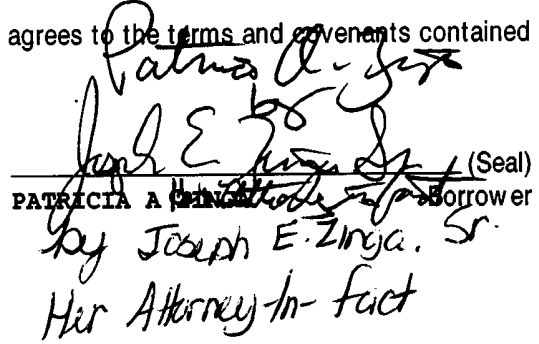 agrees to the terms and covenants contained
Patricia A. Zinga
by
Joseph E Zinga Sr
(Seal)
PATRICIA A ZINGA Borrower
by Joseph E. Zinga, Sr.
Her Attorney-In-fact